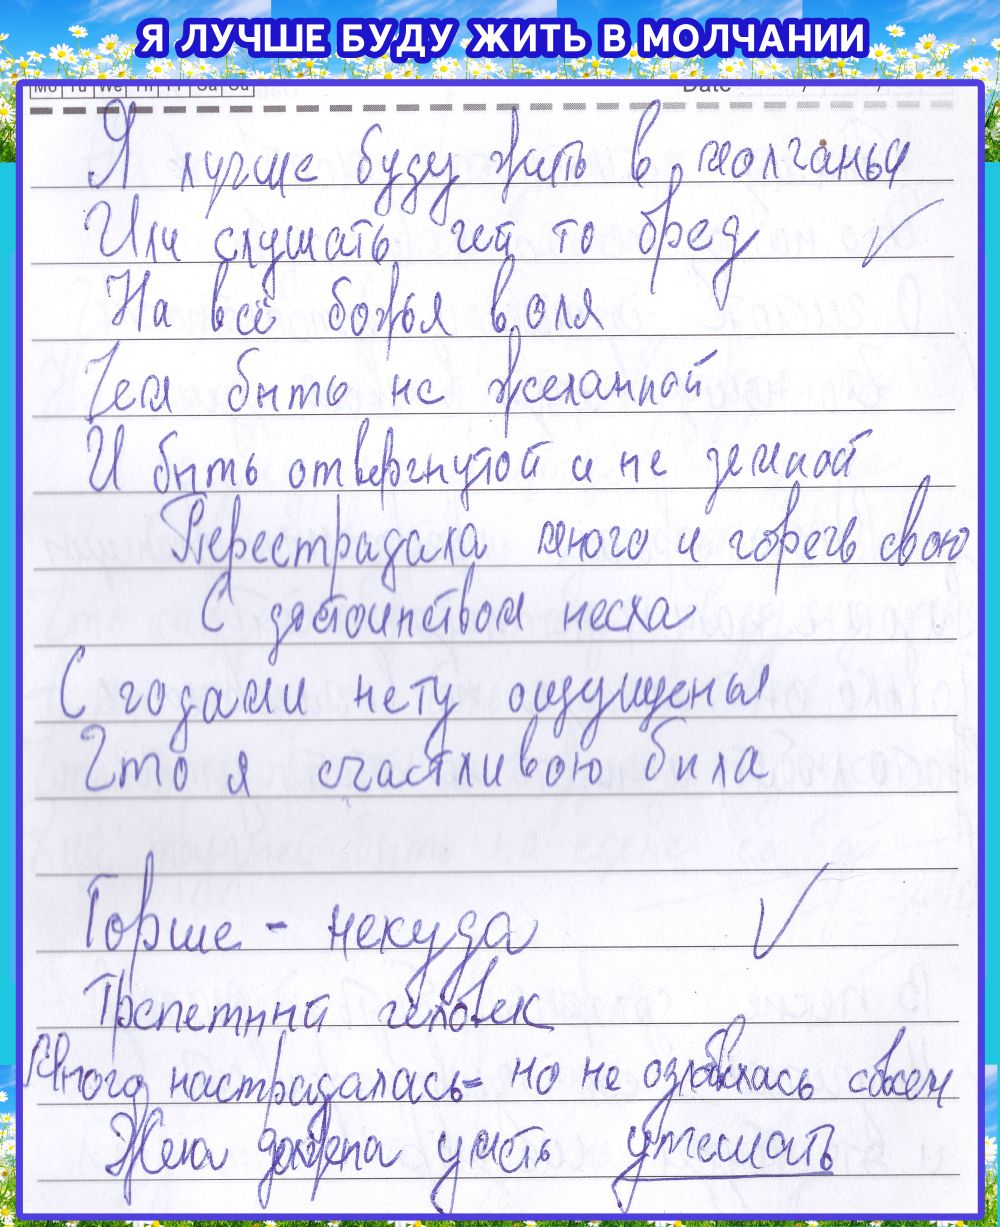 Я ЛУЧШЕ БУДУ ЖИТЬ В МОЛЧАНИИ
Mo Tu We Th Fr Sa Su Date / /
Я лучше буду жить в молчаньи
Или слушать чей то бред
На всё божья воля
Чем быть не желанной
И быть отвергнутой и не земной
Перестрадала много и горечь свою
С достоинством несла
С годами нету ощущенья
Что я счастливою была
Горше - некуда
Трепетный человек
Много настрадалась - но не озлобилась совсем
Жена должна уметь утешать